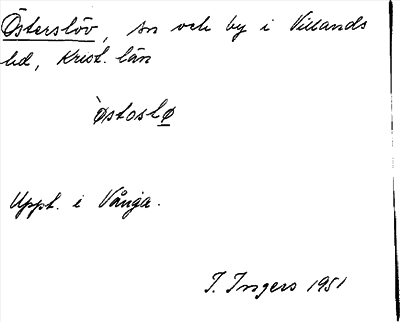 Österslöv, sn och by i Villands
hd, Krist. län
`østoslø
Uppt. i Vånga.
I. Ingers 1951